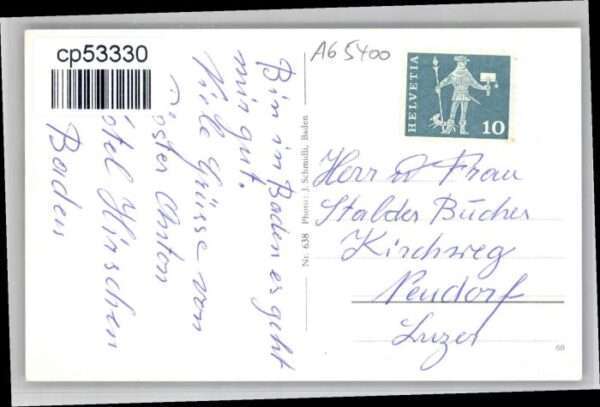 cp53330
A6 5400
HELVETIA
10
Bin in Baden es geht
mir gut.
Viele Grüsse von
Anton
Hirschen
Baden
Nr. 638 Photo: J. Schmidli, Baden
Herr u Frau
Stalder Bücher
Kirchweg
Neudorf
Luzer
60